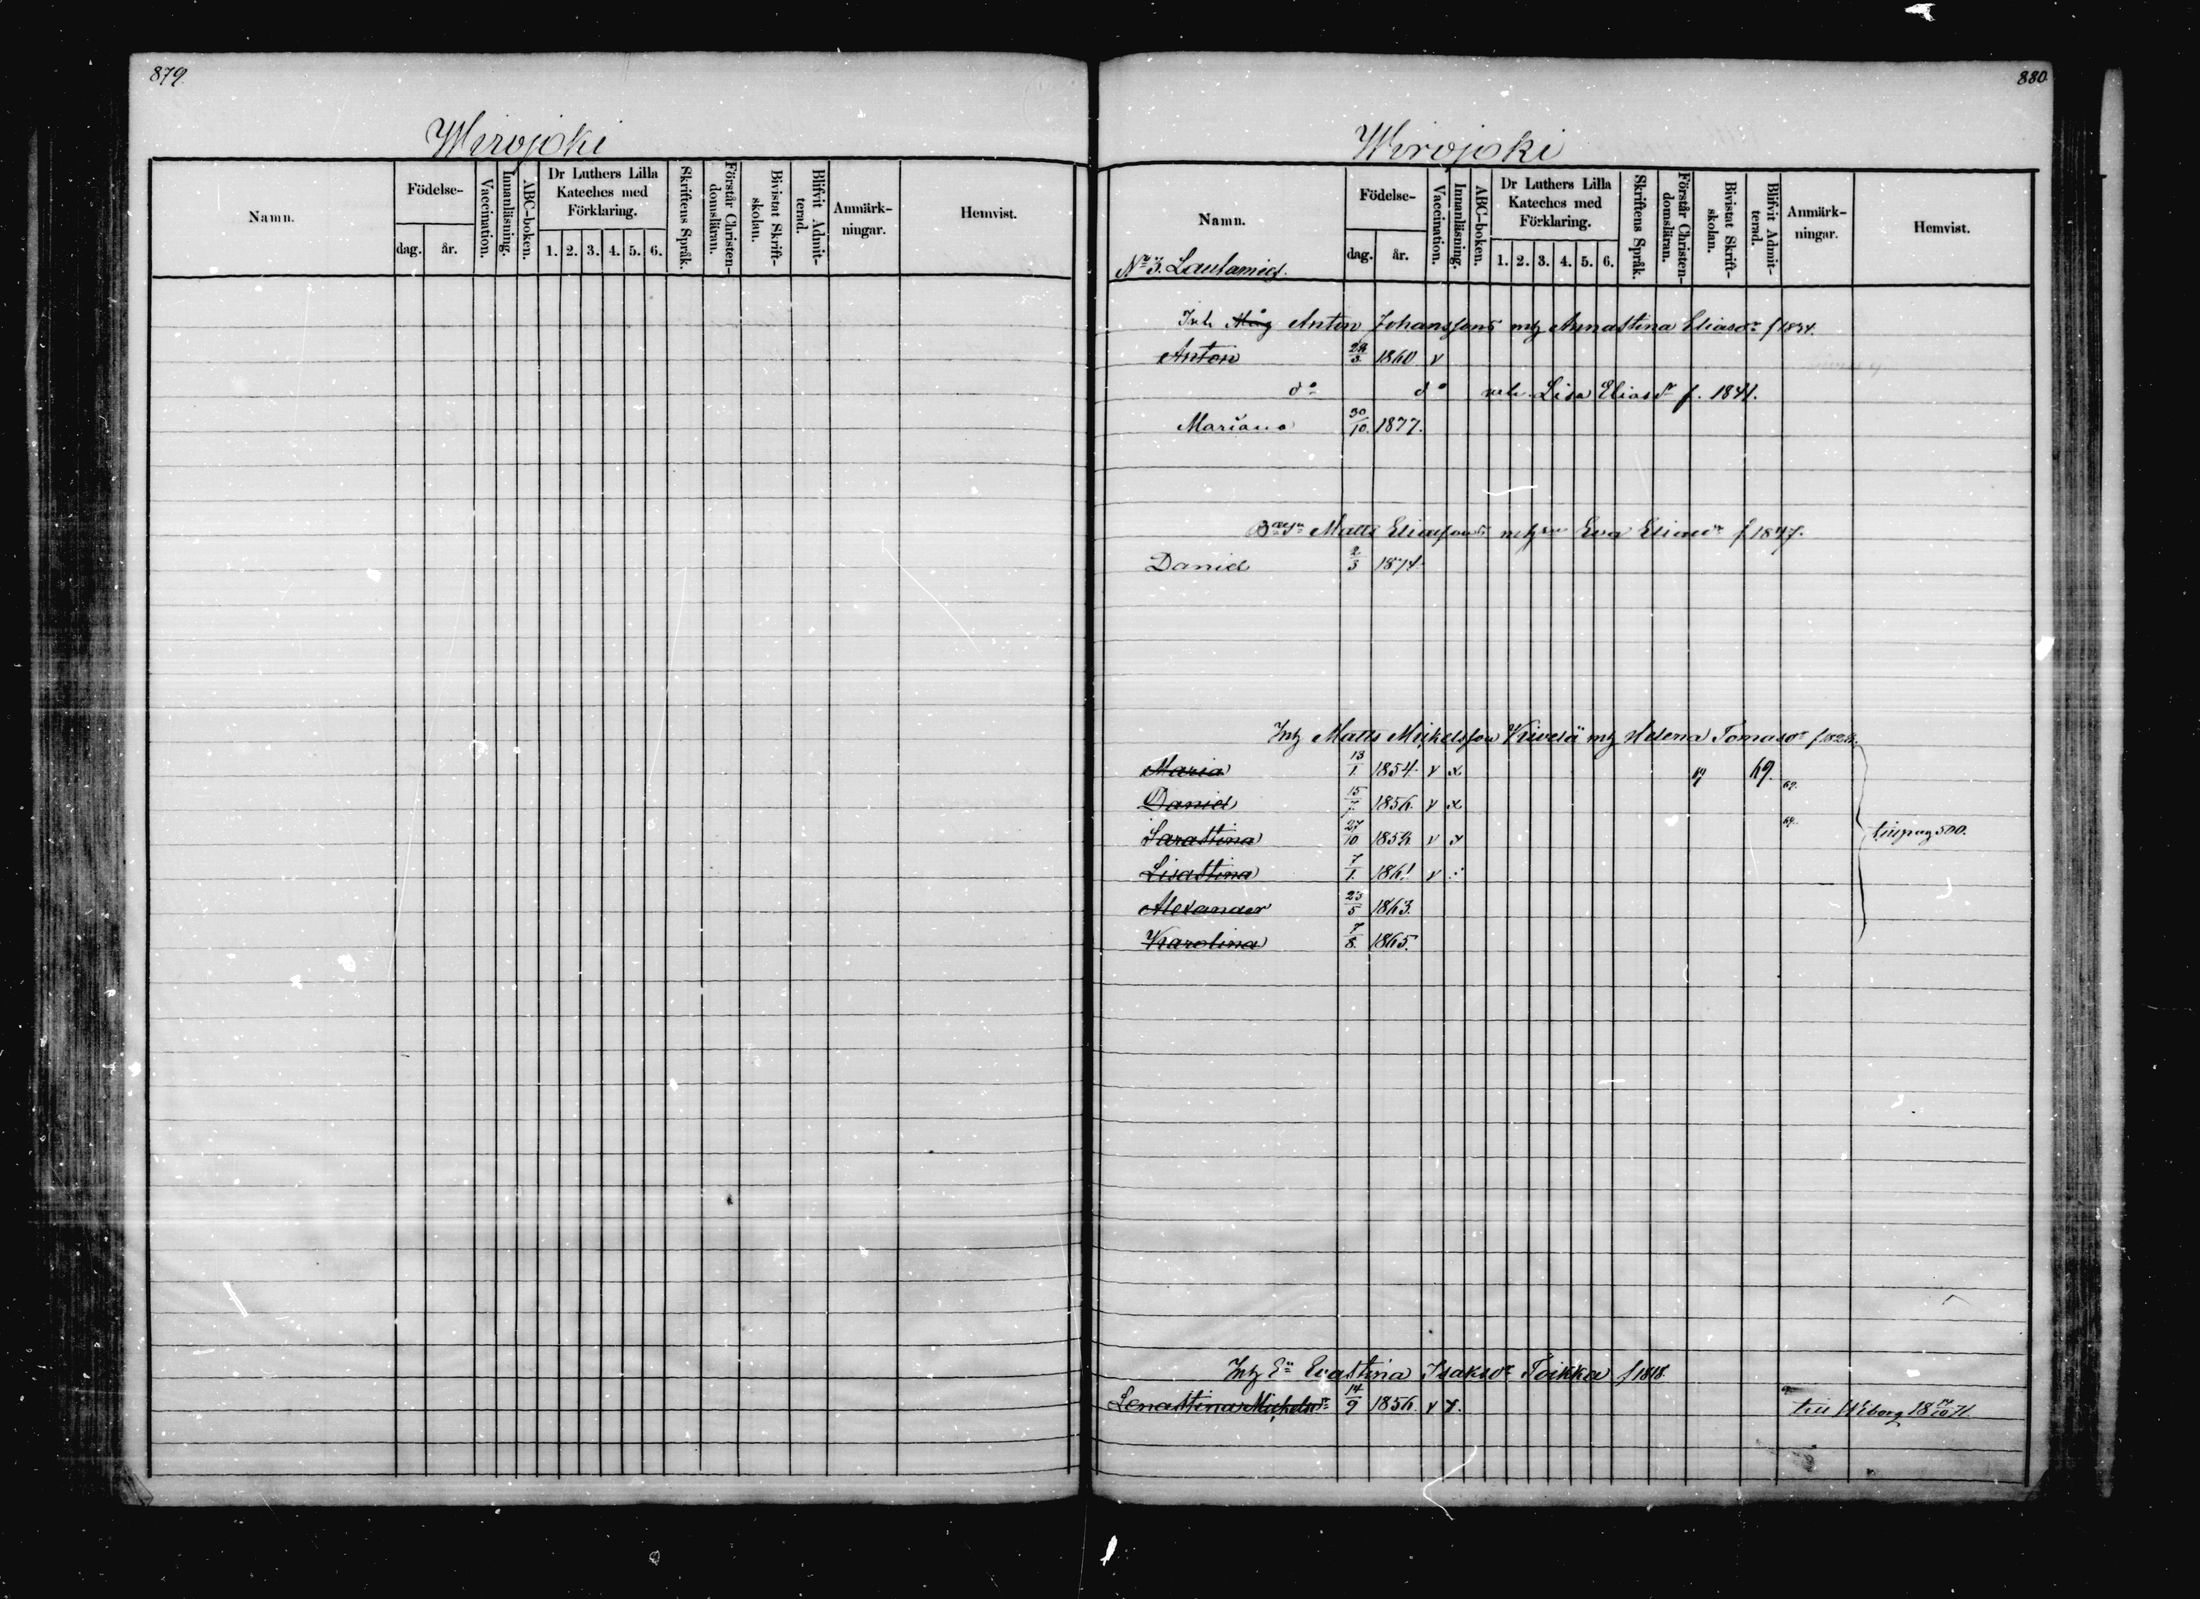 879.
Wirojoki
Namn.
Födelse-
dag.
år.
Vaccination.
Innanläsning.
ABC-boken.
Dr Luthers Lilla
Kateches med
Förklaring.
1. 2. 3. 4. 5. 6.
Skriftens Språk.
Förstår Christen-
domsläran.
Bivistat Skrift-
skolan.
Blifvit Admit-
terad.
Anmärk-
ningar.
Hemvist.
880
Wirojoki
Namn.
Födelse-
dag.
år.
Vaccination.
Innanläsning.
ABC-boken.
Dr Luthers Lilla
Kateches med
Förklaring.
1. 2. 3. 4. 5. 6.
Skriftens Språk.
Förstår Christen-
domsläran.
Bivistat Skrift-
skolan.
Blifvit Admit-
terad.
Anmärk-
ningar.
Hemvist.
No 3.
Inh Måg Anton Johanssons Annastina Eliasdr f 1834.
Anton 1860 v
do do Lisa Eliasdr f. 1841.
Mariana 30/10. 1877.
Matts Eliassons Eva Eliasdr f 1847.
Daniel 2/3 1874.
Matts Mickelsson Kivelä Helena Tomasdr
Maria 13/1. 1854. v x 69 69.
Daniel 15/7. 1856. v x 69.
Sarastina 27/10 v x 69.
Lisastina 7/1. 1861 v
Alexander 23/5 1863.
Karolina 7/8. 1865.
pag 500.
Evastina Isaksdr Toikka f 1818.
Lenastina Mickelsdr 14/9 1856. v x.
till Wiborg